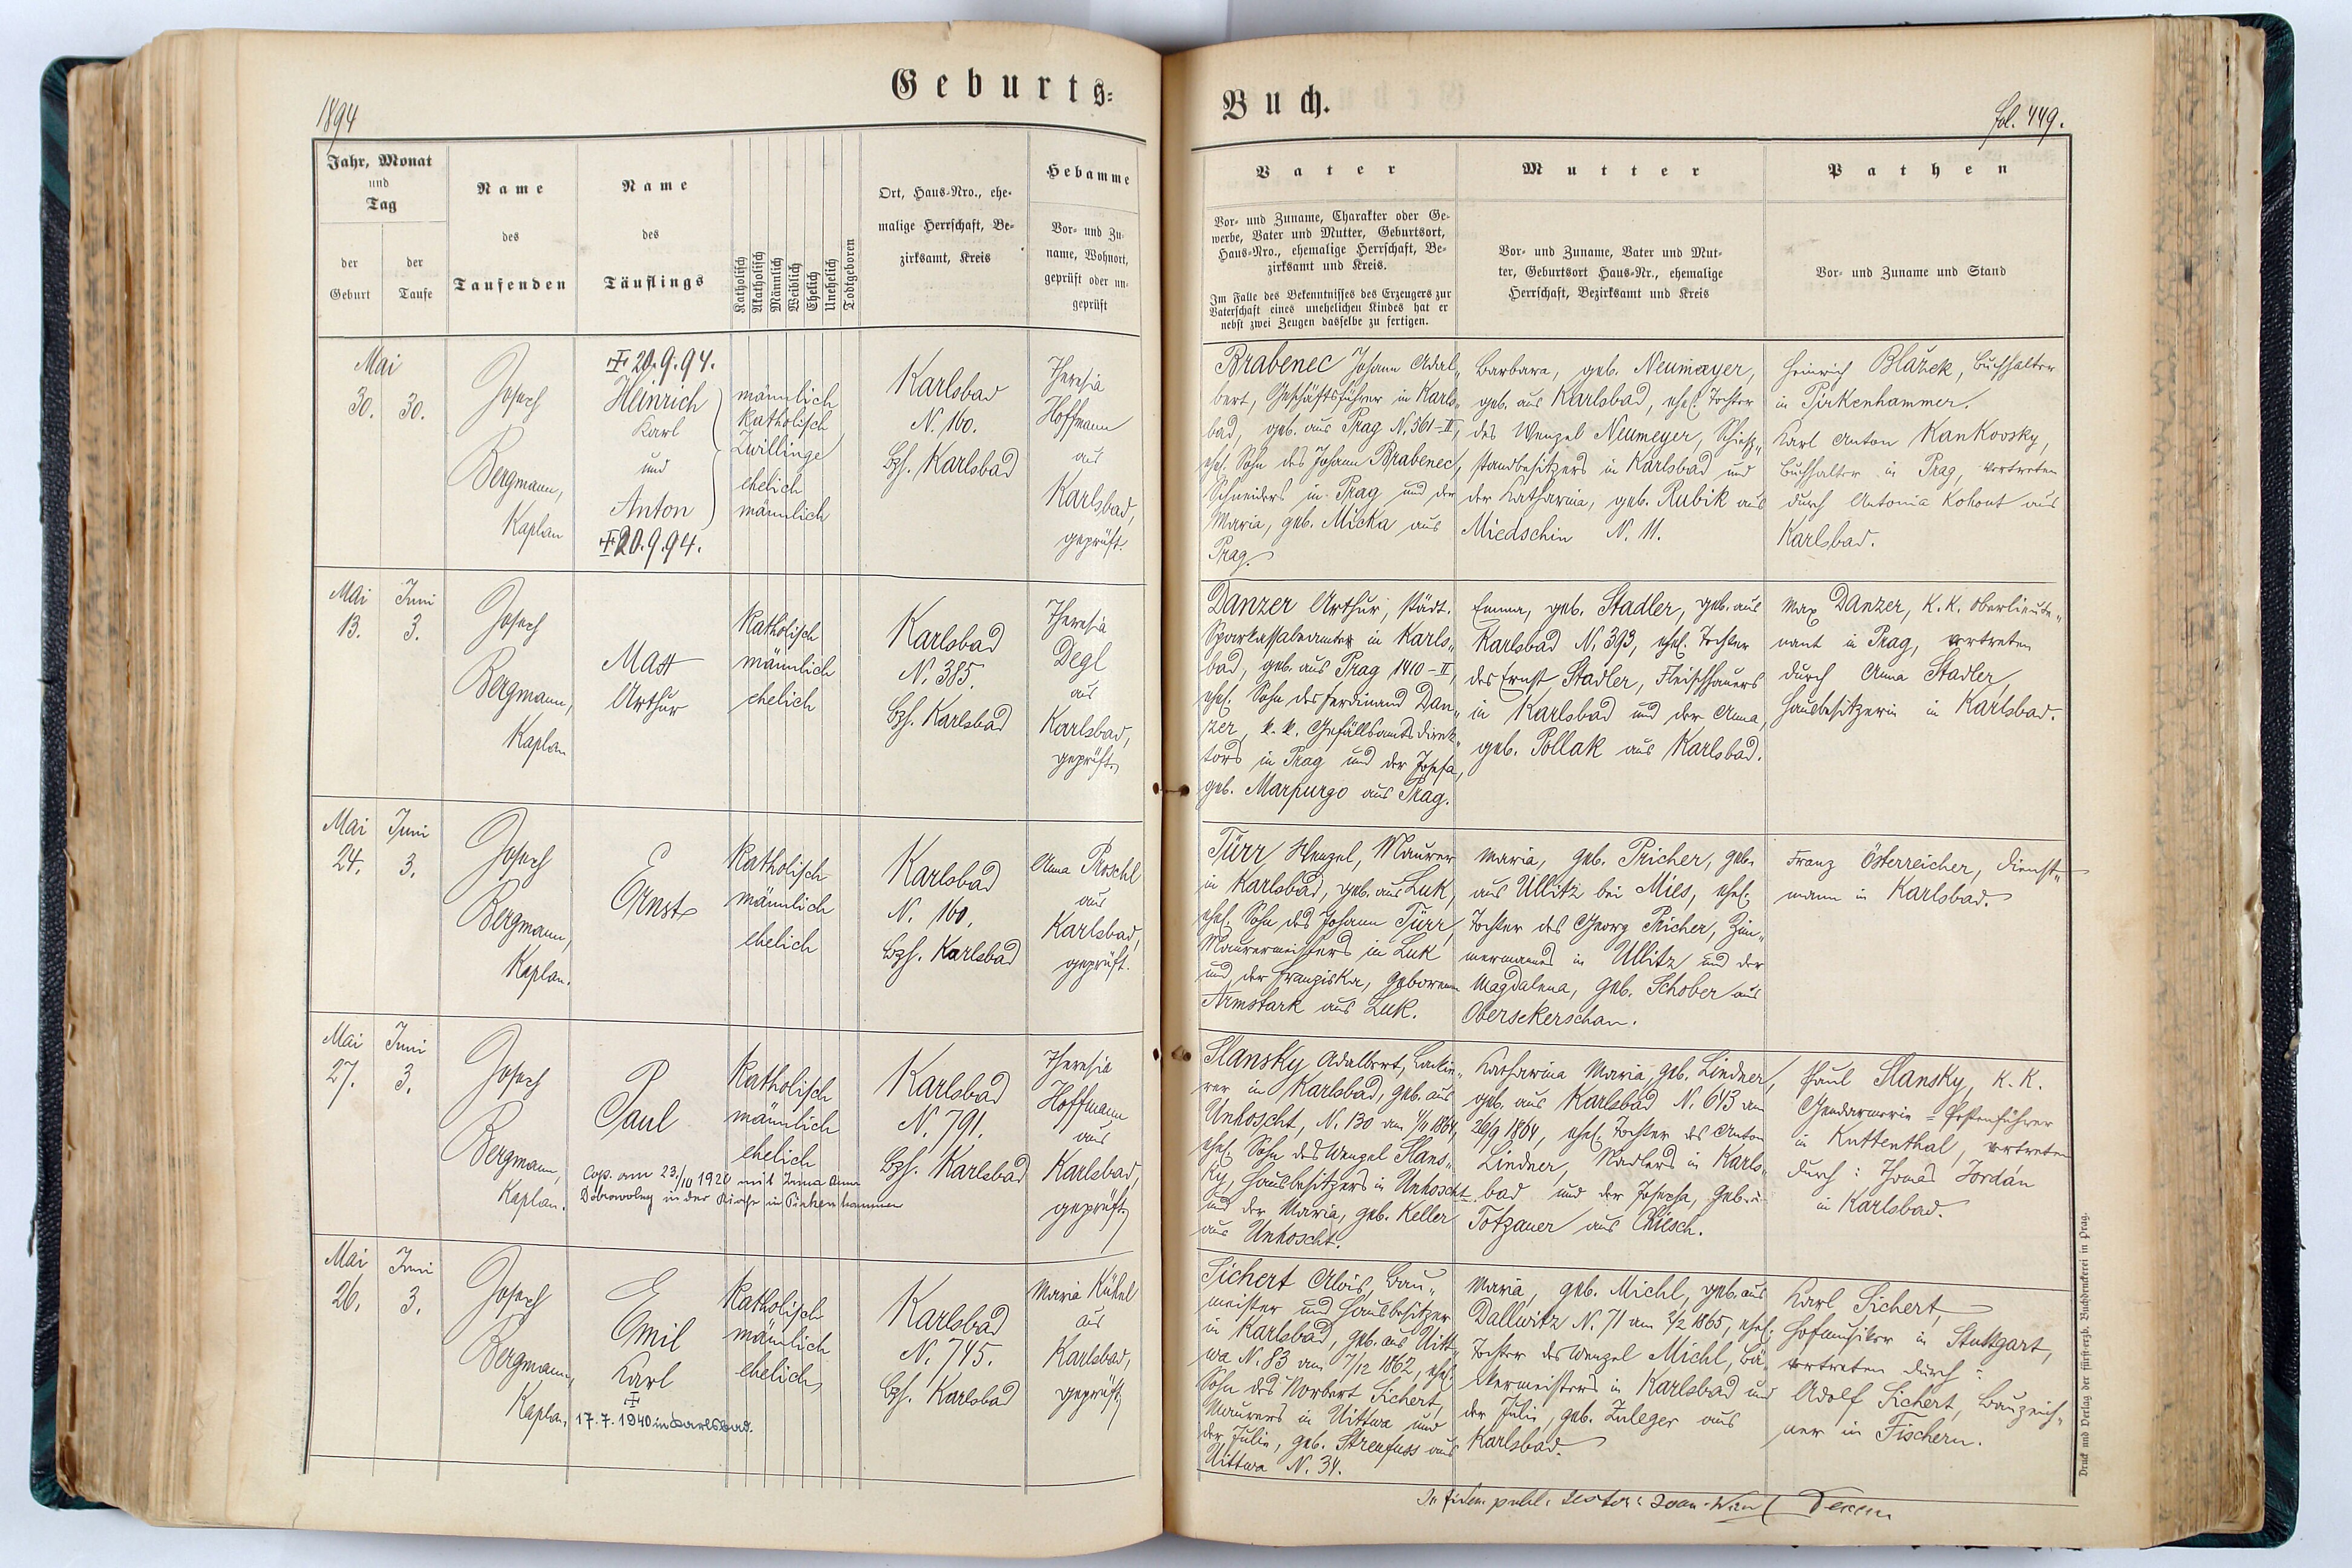 Geburts-
Buch.
1894
fol. 449.
Jahr, Monat
und
Tag
der
Geburt
der
Taufe
Name
des
Taufenden
Name
des
Täuflings
Katholisch
Akatholisch
Männlich
Weiblich
Ehelich
Unehelich
Todtgeboren
Ort, Haus-Nro., ehe-
malige Herrschaft, Be-
zirksamt, Kreis
Hebamme
Vor- und Zu-
name, Wohnort,
geprüft oder un-
geprüft
Vater
Vor- und Zuname, Charakter oder Ge-
werbe, Vater und Mutter, Geburtsort,
Haus-Nro., ehemalige Herrschaft, Be-
zirksamt und Kreis.
Im Falle des Bekenntnisses des Erzeugers zur
Vaterschaft eines unehelichen Kindes hat er
nebst zwei Zeugen dasselbe zu fertigen.
Mutter
Vor- und Zuname, Vater und Mut-
ter, Geburtsort Haus-Nr., ehemalige
Herrschaft, Bezirksamt und Kreis
Pathen
Vor- und Zuname und Stand
Mai
30.
30.
Josef
Bergmann,
Kaplan
20.9.94.
Heinrich
Karl
und
Anton
20.9.94.
männlich
katholisch
Zwillinge
ehelich
männlich
Karlsbad
N. 160.
Bzh. Karlsbad
Theresia
Hoffmann
aus
Karlsbad,
geprüft.
Brabenec Johann Adal-
bert, Geschäftsführer in Karls-
bad, geb. aus Prag N. 561-II,
ehel. Sohn des Johann Brabenec,
Schneiders in Prag und der
Maria, geb. Micka aus
Prag.
Barbara, geb. Neumayer,
geb. aus Karlsbad, ehel. Tochter
des Wenzel Neumeyer, Schieß-
standbesitzers in Karlsbad und
der Katharina, geb. Rubik aus
Miedschin N. 11.
Heinrich Blažek, Buchhalter
in Pirkenhammer.
Karl Anton Kankovsky,
Buchhalter in Prag, vertreten
durch Antonia Kohout aus
Karlsbad.
Mai
13.
Juni
3.
Josef
Bergmann,
Kaplan
Max
Arthur
Katholisch
männlich
ehelich
Karlsbad
N. 385.
Bzh. Karlsbad
Theresia
Degl
aus
Karlsbad,
geprüft.
Danzer Arthur, städt.
Sparkassabeamter in Karls-
bad, geb. aus Prag 1410-II,
ehel. Sohn des Ferdinand Dan-
zer, k. k. Gefällsamtsdirek-
tors in Prag und der Josefa,
geb. Marpurgo aus Prag.
Emma, geb. Stadler, geb. aus
Karlsbad N. 393, ehel. Tochter
des Ernst Stadler, Fleischhauers
in Karlsbad und der Anna,
geb. Pollak aus Karlsbad.
Max Danzer, K.K. Oberlieute-
nant in Prag, vertreten
durch Anna Stadler,
Hausbesitzerin in Karlsbad.
Mai
24.
Juni
3.
Josef
Bergmann,
Kaplan.
Ernst
Katholisch
männlich
ehelich
Karlsbad
N. 160.
Bzh. Karlsbad
Anna Proschl
aus
Karlsbad,
geprüft.
Türr Wenzel, Maurer
in Karlsbad, geb. aus Luk,
ehel. Sohn des Johann Türr,
Maurermeisters in Luk
und der Franziska, geborenen
Armstark aus Luk.
Maria, geb. Pricher, geb.
aus Ullitz bei Mies, ehel.
Tochter des Georg Pricher, Zim-
mermanns in Ullitz und der
Magdalena, geb. Schober aus
Obersekerschan.
Franz Österreicher, Dienst-
mann in Karlsbad.
Mai
27.
Juni
3.
Josef
Bergmann,
Kaplan.
Paul
Cop. am 23./10 1920 mit Anna
Dobrowolny in der Kirche in Pirkenhammer
Katholisch
männlich
ehelich
Karlsbad
N. 791.
Bzh. Karlsbad
Theresia
Hoffmann
aus
Karlsbad,
geprüft.
Slansky Adalbert, Lackie-
rer in Karlsbad, geb. aus
Unhoscht, N. 130 am 1864,
ehel. Sohn des Wenzel Slans-
ky, Hausbesitzers in Unhoscht
und der Maria, geb. Keller
aus Unhoscht.
Katharina Maria, geb. Lindner,
geb. aus Karlsbad N. 643 am
26/9 1864, ehel. Tochter des Anton
Lindner, Nadlers in Karls-
bad und der Josefa, geb.
Totzauer aus Chiesch.
Paul Slansky, K. K.
Gendarmerie-Postenführer
in Kuttenthal, vertreten
durch: Thomas Jordán
in Karlsbad.
Mai
26.
Juni
3.
Josef
Bergmann,
Kaplan
Emil
Karl
17.7.1940 in Karlsbad.
Katholisch
männlich
ehelich
Karlsbad
N. 745.
Bzh. Karlsbad
Maria Kühnl
aus
Karlsbad,
geprüft.
Sichert Alois, Bau-
meister und Hausbesitzer
in Karlsbad, geb. aus Uitt-
wa N. 83 am 7/12 1862, ehel.
Sohn des Norbert Sichert,
Maurers in Uittwa und
der Julie, geb. Streufuss aus
Uittwa N. 34.
Maria, geb. Michl, geb. aus
Dallwitz N. 71 am 2/2 1865, ehel.
Tochter des Wenzel Michl, Bä-
ckermeisters in Karlsbad und
der Julie, geb. Zuleger aus
Karlsbad.
Karl Sichert,
Hofmusiker in Stuttgart,
vertreten durch:
Adolf Sichert, Bauzeich-
ner in Fischern.
Druck und Verlag der fürst-erzb. Buchdruckerei in Prag.